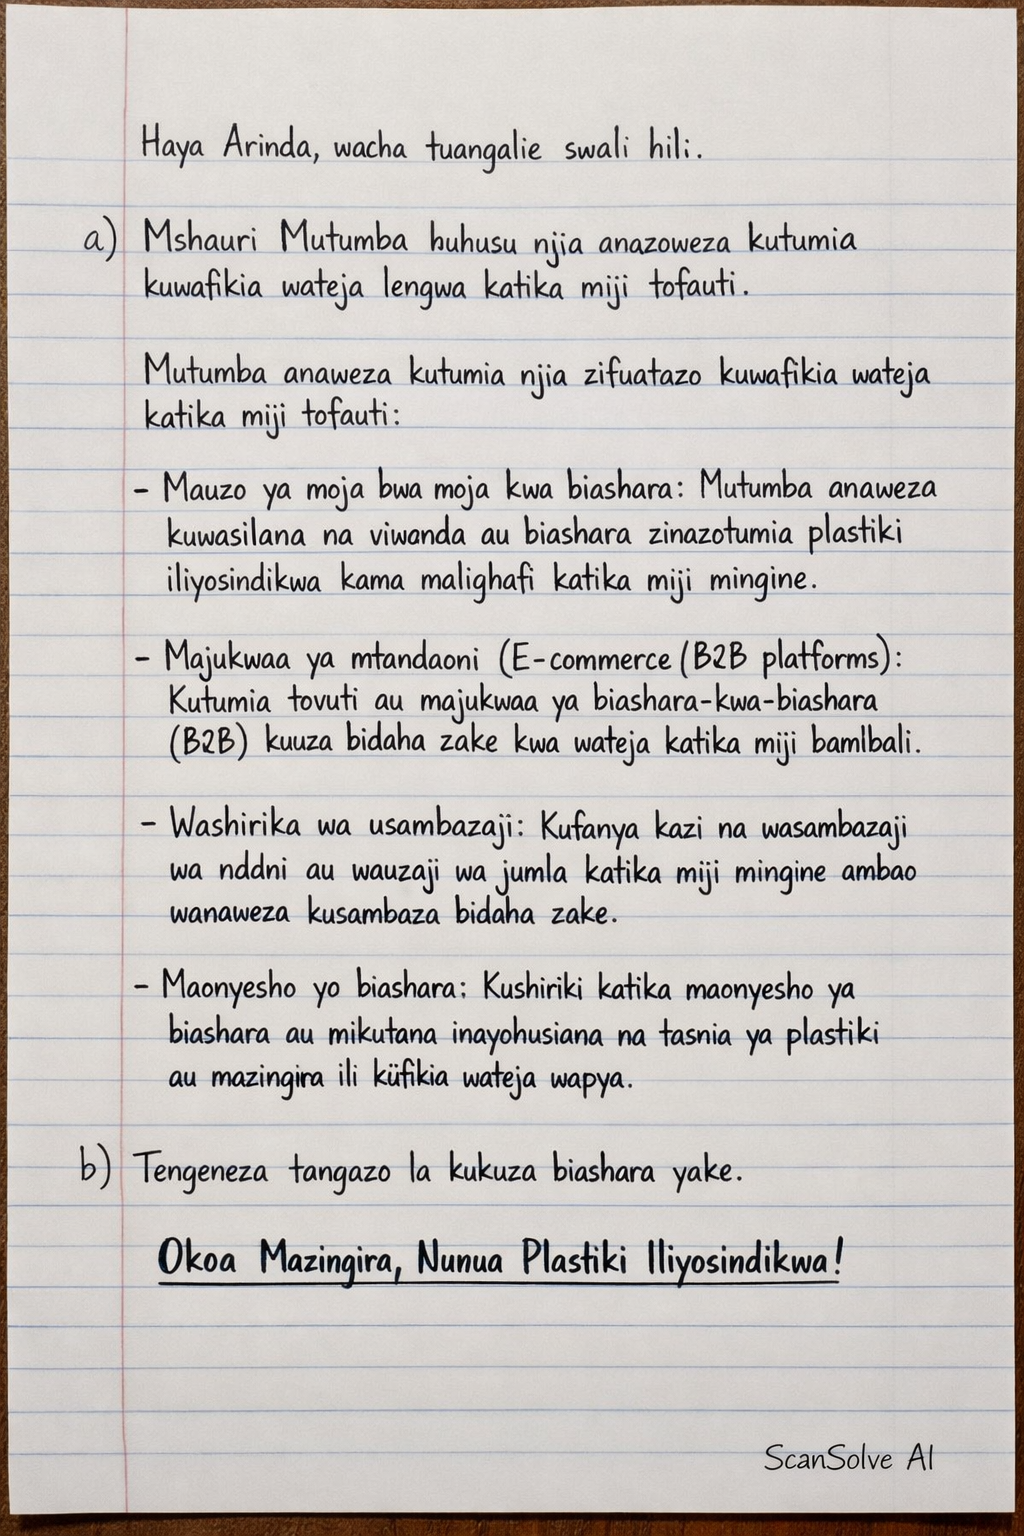 Haya Arinda, wacha tuangalie swali hili.
a) Mshauri Mutumba huhusu njia anazoweza kutumia
kuwafikia wateja lengwa katika miji tofauti.
Mutumba anaweza kutumia njia zifuatazo kuwafikia wateja
katika miji tofauti:
- Mauzo ya moja bwa moja kwa biashara: Mutumba anaweza
kuwasilana na viwanda au biashara zinazotumia plastiki
iliyosindikwa kama malighafi katika miji mingine.
- Majukwaa ya mtandaoni (E-commerce (B2B platforms):
Kutumia tovuti au majukwaa ya biashara-kwa-biashara
(B2B) kuuza bidaha zake kwa wateja katika miji bamlbali.
- Washirika wa usambazaji: Kufanya kazi na wasambazaji
wa nddni au wauzaji wa jumla katika miji mingine ambao
wanaweza kusambaza bidaha zake.
- Maonyesho yo biashara: Kushiriki katika maonyesho ya
biashara au mikutana inayohusiana na tasnia ya plastiki
au mazingira ili küfikia wateja wapya.
b) Tengeneza tangazo la kukuza biashara yake.
Okoa Mazingira, Nunua Plastiki Iliyosindikwa!
ScanSolve AI